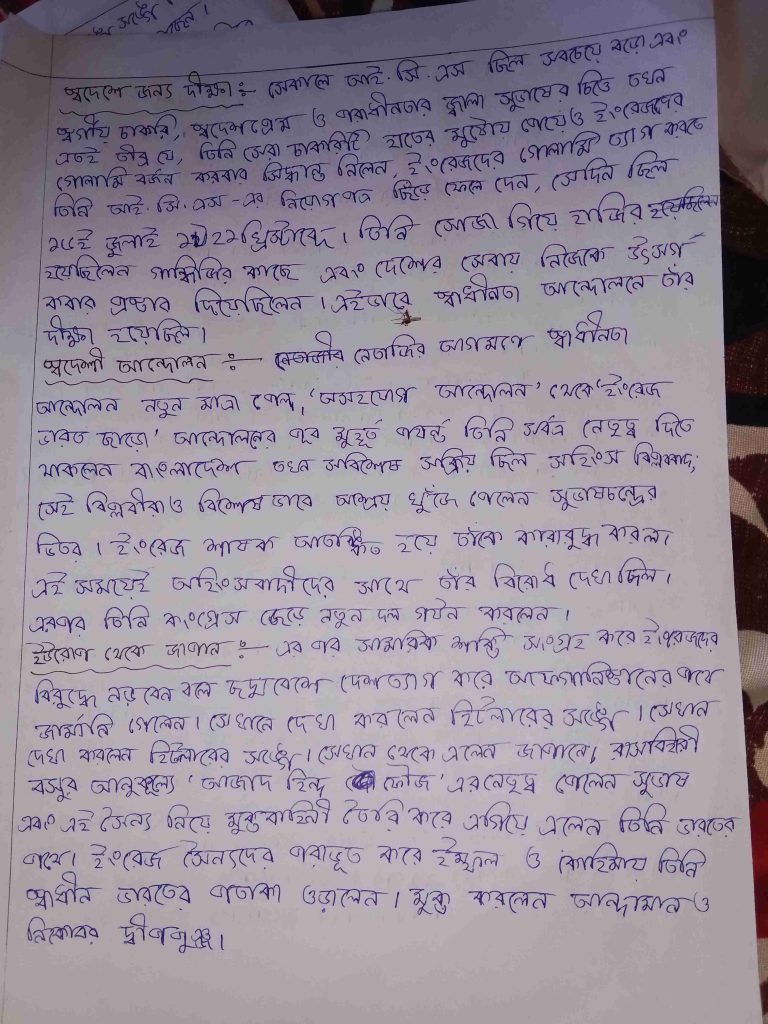 সঙ্গে
স্বদেশে জন্য দীক্ষা :- সেকালে আই. সি. এস ছিল সবচেয়ে বড়ো এবং
স্বর্গীয় চাকরি, স্বদেশপ্রেম ও পরাধীনতার জ্বালা সুভাষের চিত্তে তখন
এতই তীব্র যে, তিনি সেরা চাকরিটি হাতের মুঠোয় পেয়েও ইংরেজদের
গোলামি বর্জন করবার সিদ্ধান্ত নিলেন, ইংরেজদের গোলামি ত্যাগ করতে
তিনি আই. সি. এস-এর নিয়োগপত্র ছিঁড়ে ফেলে দেন, সেদিন ছিল
১৬ই জুলাই ১৯২২ খ্রিস্টাব্দে। তিনি সোজা গিয়ে হাজির হয়েছিলেন
হয়েছিলেন গান্ধিজির কাছে এবং দেশের সেবায় নিজেকে উৎসর্গ
করবার প্রস্তাব দিয়েছিলেন। এইভাবে স্বাধীনতা আন্দোলনে তাঁর
দীক্ষা হয়েছিল।
স্বদেশী আন্দোলন :- নেতাজীর নেতাজির আগমণে স্বাধীনতা
আন্দোলন নতুন মাত্রা পেল, 'অসহযোগ আন্দোলন' থেকে 'ইংরেজ
ভারত ছাড়ো' আন্দোলনের পূর্ব মুহূর্ত পর্যন্ত তিনি সর্বত্র নেতৃত্ব দিতে
থাকলেন বাংলাদেশে তখন সবিশেষ সক্রিয় ছিল সহিংস বিপ্লববাদ;
সেই বিপ্লবীরাও বিশেষ ভাবে আশ্রয় খুঁজে পেলেন সুভাষচন্দ্রের
ভিতর। ইংরেজ শাসক আতঙ্কিত হয়ে তাঁকে কারারুদ্ধ করল।
এই সময়েই অহিংসবাদীদের সাথে তাঁর বিরোধ দেখা দিল।
এরপর তিনি কংগ্রেস ছেড়ে নতুন দল গঠন করলেন।
ইউরোপ থেকে জাপান :- এর পর সামরিক শক্তি সংগ্রহ করে ইংরেজদের
বিরুদ্ধে লড়বেন বলে ছদ্মবেশে দেশত্যাগ করে আফগানিস্তানের পথে
জার্মানি গেলেন। সেখানে দেখা করলেন হিটলারের সঙ্গে। সেখান
দেখা করলেন হিটলারের সঙ্গে। সেখান থেকে এলেন জাপানে, রাসবিহারী
বসুর আনুকূল্যে 'আজাদ হিন্দ ফৌজ' এর নেতৃত্ব পেলেন সুভাষ
এবং এই সৈন্য নিয়ে মুক্তবাহিনী তৈরি করে এগিয়ে এলেন তিনি ভারতের
পথে। ইংরেজ সৈন্যদের পরাভূত করে ইম্ফল ও কোহিমায় তিনি
স্বাধীন ভারতের পতাকা ওড়ালেন। মুক্ত করলেন আন্দামান ও
নিকোবর দ্বীপপুঞ্জ।